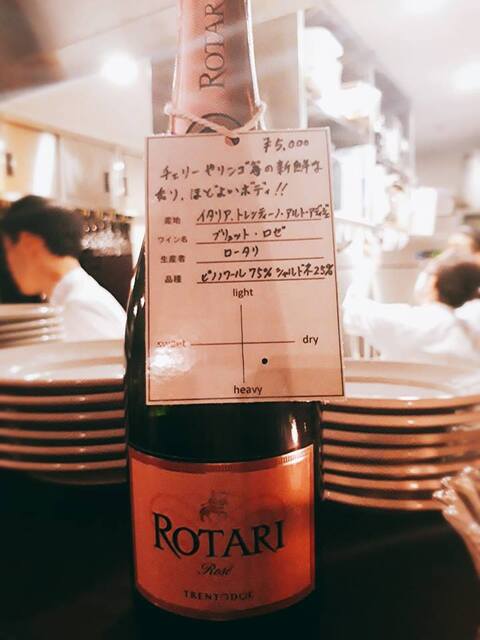 ROTARI
¥5,000
チェリーやリンゴ等の新鮮な
香り、ほどよいボディ!!
産地 イタリア、トレンティーノ・アルト・アディジェ
ワイン名 ブリュット・ロゼ
生産者 ロータリ
品種 ピノノワール 75% シャルドネ 25%
light
sweet dry
heavy
ROTARI
Rosé
TRENTODOC